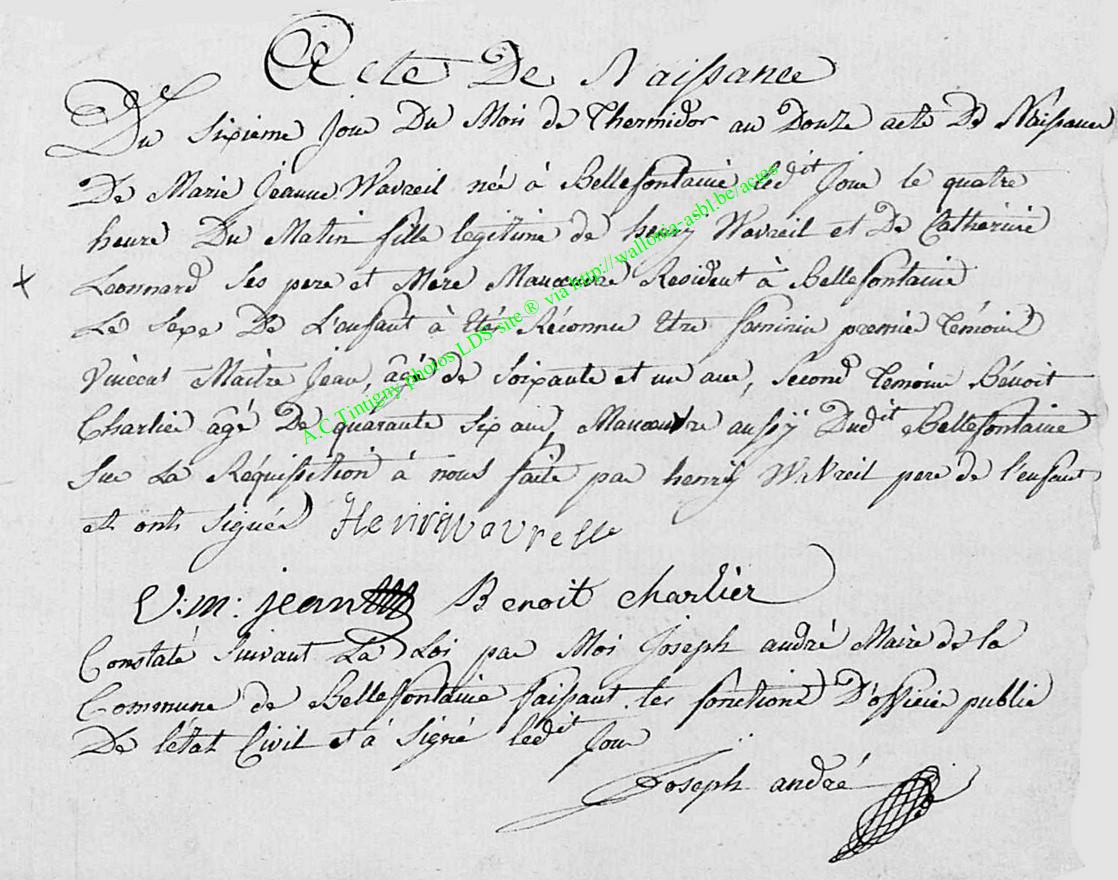 Acte De Naissance
Du sixieme Jour Du Mois de Thermidor an Douze acte De Naissance
De Marie Jeanne Wavreil née à Bellefontaine ledit Jour le quatre
heure Du Matin fille legitime de henry Wavreil et De Catherine
Leonnard Ses pere et Mere Manoeuvre Resident à Bellefontaine
Le Sexe De L'enfant à Eté Réconnu Etre faminin premie Témoin
Vincent Maitre Jean, âgé de Soixante et un ans, Second Temoin Bénoit
Charlie âgé De quarante Six ans Manoeuvre aussÿ Dudit Bellefontaine
Sur La Réquisition à nous faite par henry WaVreil pere de l'enfant
et ont signér Henriquavrelle
V: m: jean Benoit charlier
Constaté Suivant La Loi par Moi Joseph andré Maire de la
Commune de Bellefontaine faissant les fonctions D'officie public
De l'état Civil et à Signé ledit Jour
Joseph andré
A.C.Tintigny photos LDS-site ® via http://wallonia-asbl.be/actes